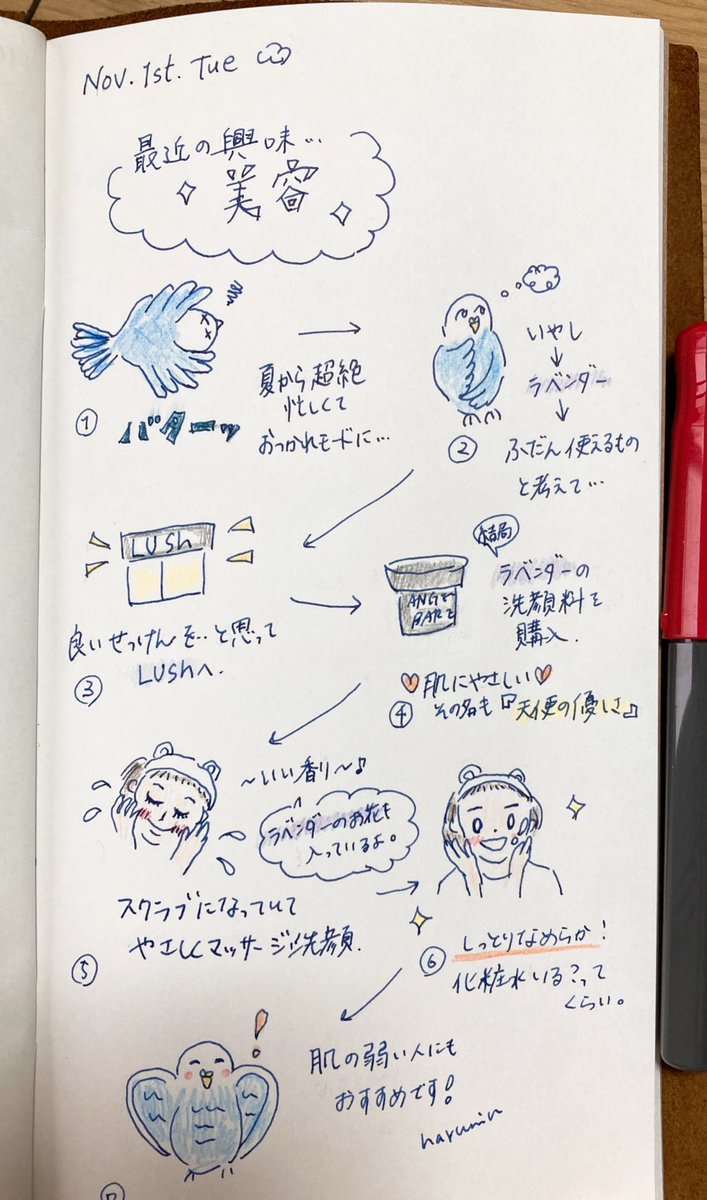 Nov. 1st. Tue
最近の興味…
美容
①
バターッ
夏から超絶
忙しくて
おつかれモードに…
②
いやし
↓
ラベンダー
↓
ふだん使えるもの
と考えて…
LUSH
良いせっけんを…と思って
LUSHへ.
③
結局
ANGE
BARE
ラベンダーの
洗顔料を
購入.
④
♡肌にやさしい♡
その名も『天使の優しさ』
~いい香り~♪
ラベンダーのお花も
入っているよ。
スクラブになっていて
やさしくマッサージ洗顔.
⑤
⑥
しっとりなめらか!
化粧水いる?って
くらい。
肌の弱い人にも
おすすめです!
harumin